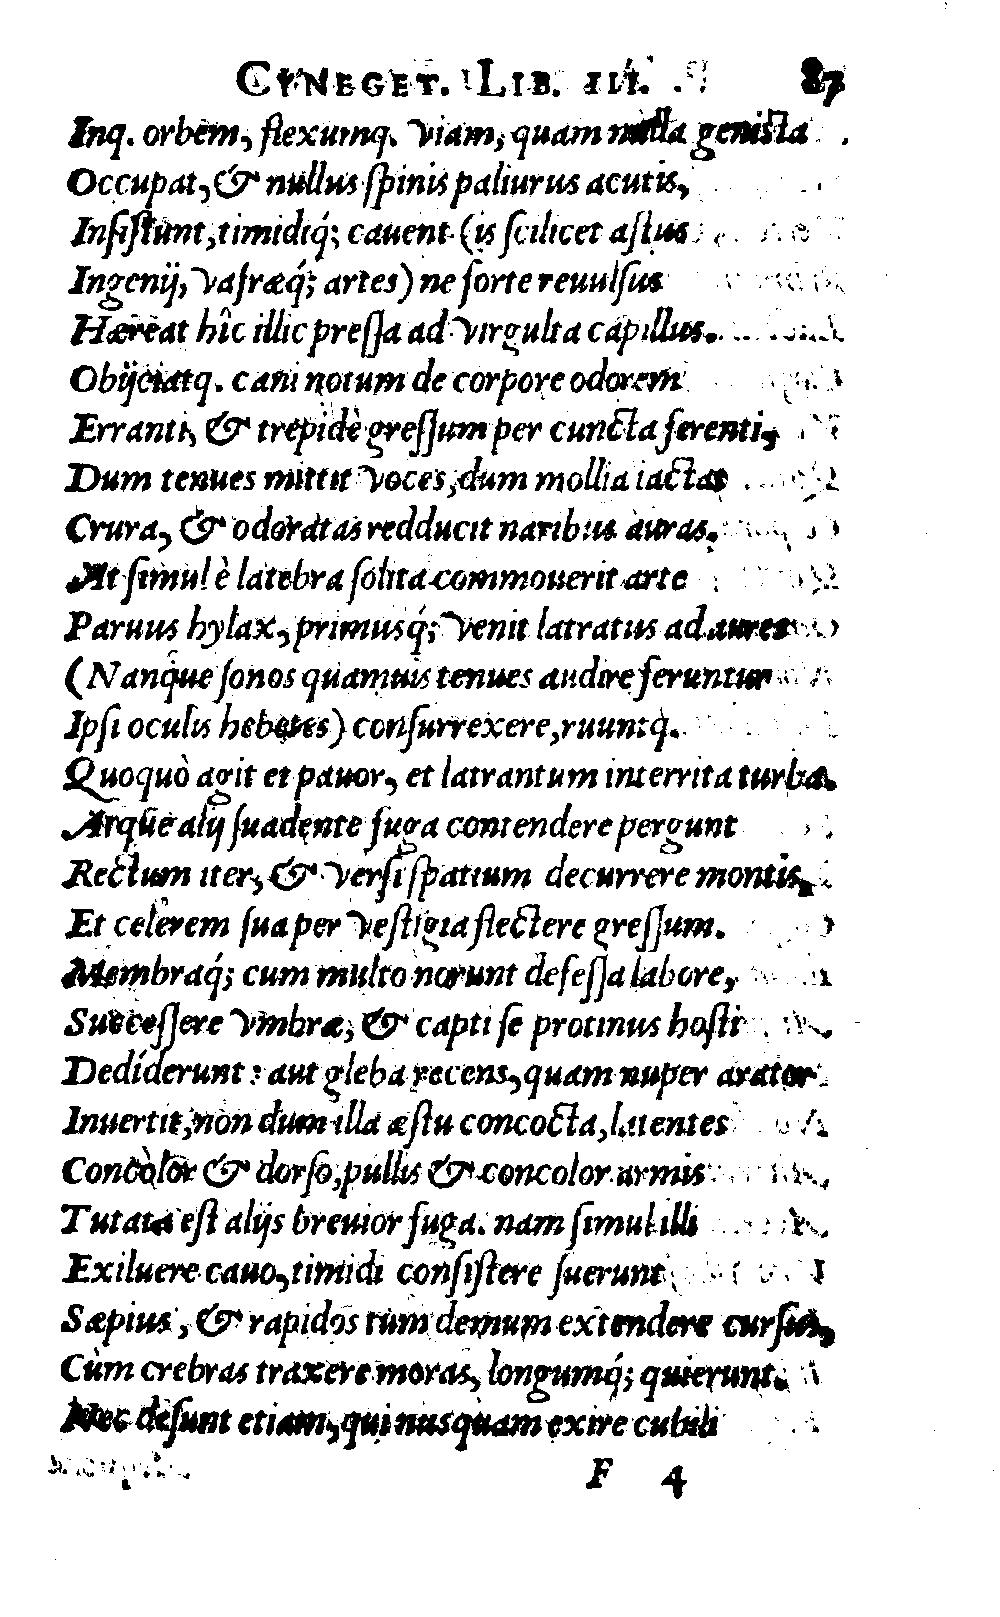 CYNEGET. LIB. III. 87
Inq. orbem, flexumq. viam, quam nulla genista
Occupat, & nullus spinis paliurus acutis,
Insistunt, timidiq́; cauent (is scilicet astus
Ingenij, vafræq́; artes) ne forte reuulsus
Hæreat hîc illic pressa ad virgulta capillus.
Obijciatq. cani notum de corpore odorem
Erranti, & trepidè gressum per cuncta ferenti,
Dum tenues mittit voces, dum mollia iactat
Crura, & odoratas redducit naribus auras.
At simul è latebra solita commouerit arte
Paruus hylax, primusq́; venit latratus ad aures
(Nanque sonos quamuis tenues audire feruntur
Ipsi oculis hebetes) consurrexere, ruuntq.
Quoquò agit et pauor, et latrantum interrita turba.
Atque alij suadente fuga contendere pergunt
Rectum iter, & versi spatium decurrere montis,
Et celerem sua per vestigia flectere gressum.
Membraq́; cum multo norunt defessa labore,
Successere vmbræ, & capti se protinus hosti
Dediderunt: aut gleba recens, quam nuper arator
Inuertit, non dum illa æstu concocta, latentes
Concòlor & dorso, pullis & concolor armis
Tutata est alijs breuior fuga. nam simul illi
Exiluere cauo, timidi consistere fuerunt
Sæpius, & rapidos tum demum extendere cursus,
Cùm crebras traxere moras, longumq́; quierunt.
Nec desunt etiam, qui nusquam exire cubili
F 4